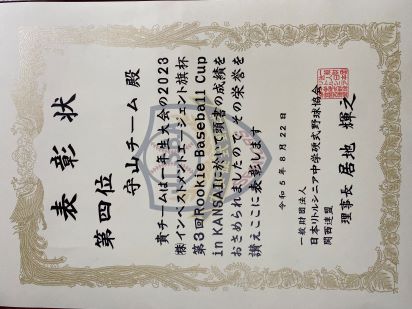 表彰状
第四位
守山チーム 殿
貴チームは一年生大会の2023
㈱インベストメントエージェント旗杯
第3回Rookie Baseball Cup
in KANSAIにおいて頭書の成績を
おさめられましたので その栄誉を
讃えここに表彰します
令和5年8月22日
一般財団法人
日本リトルシニア中学硬式野球協会
関西連盟
理事長 居地 輝之